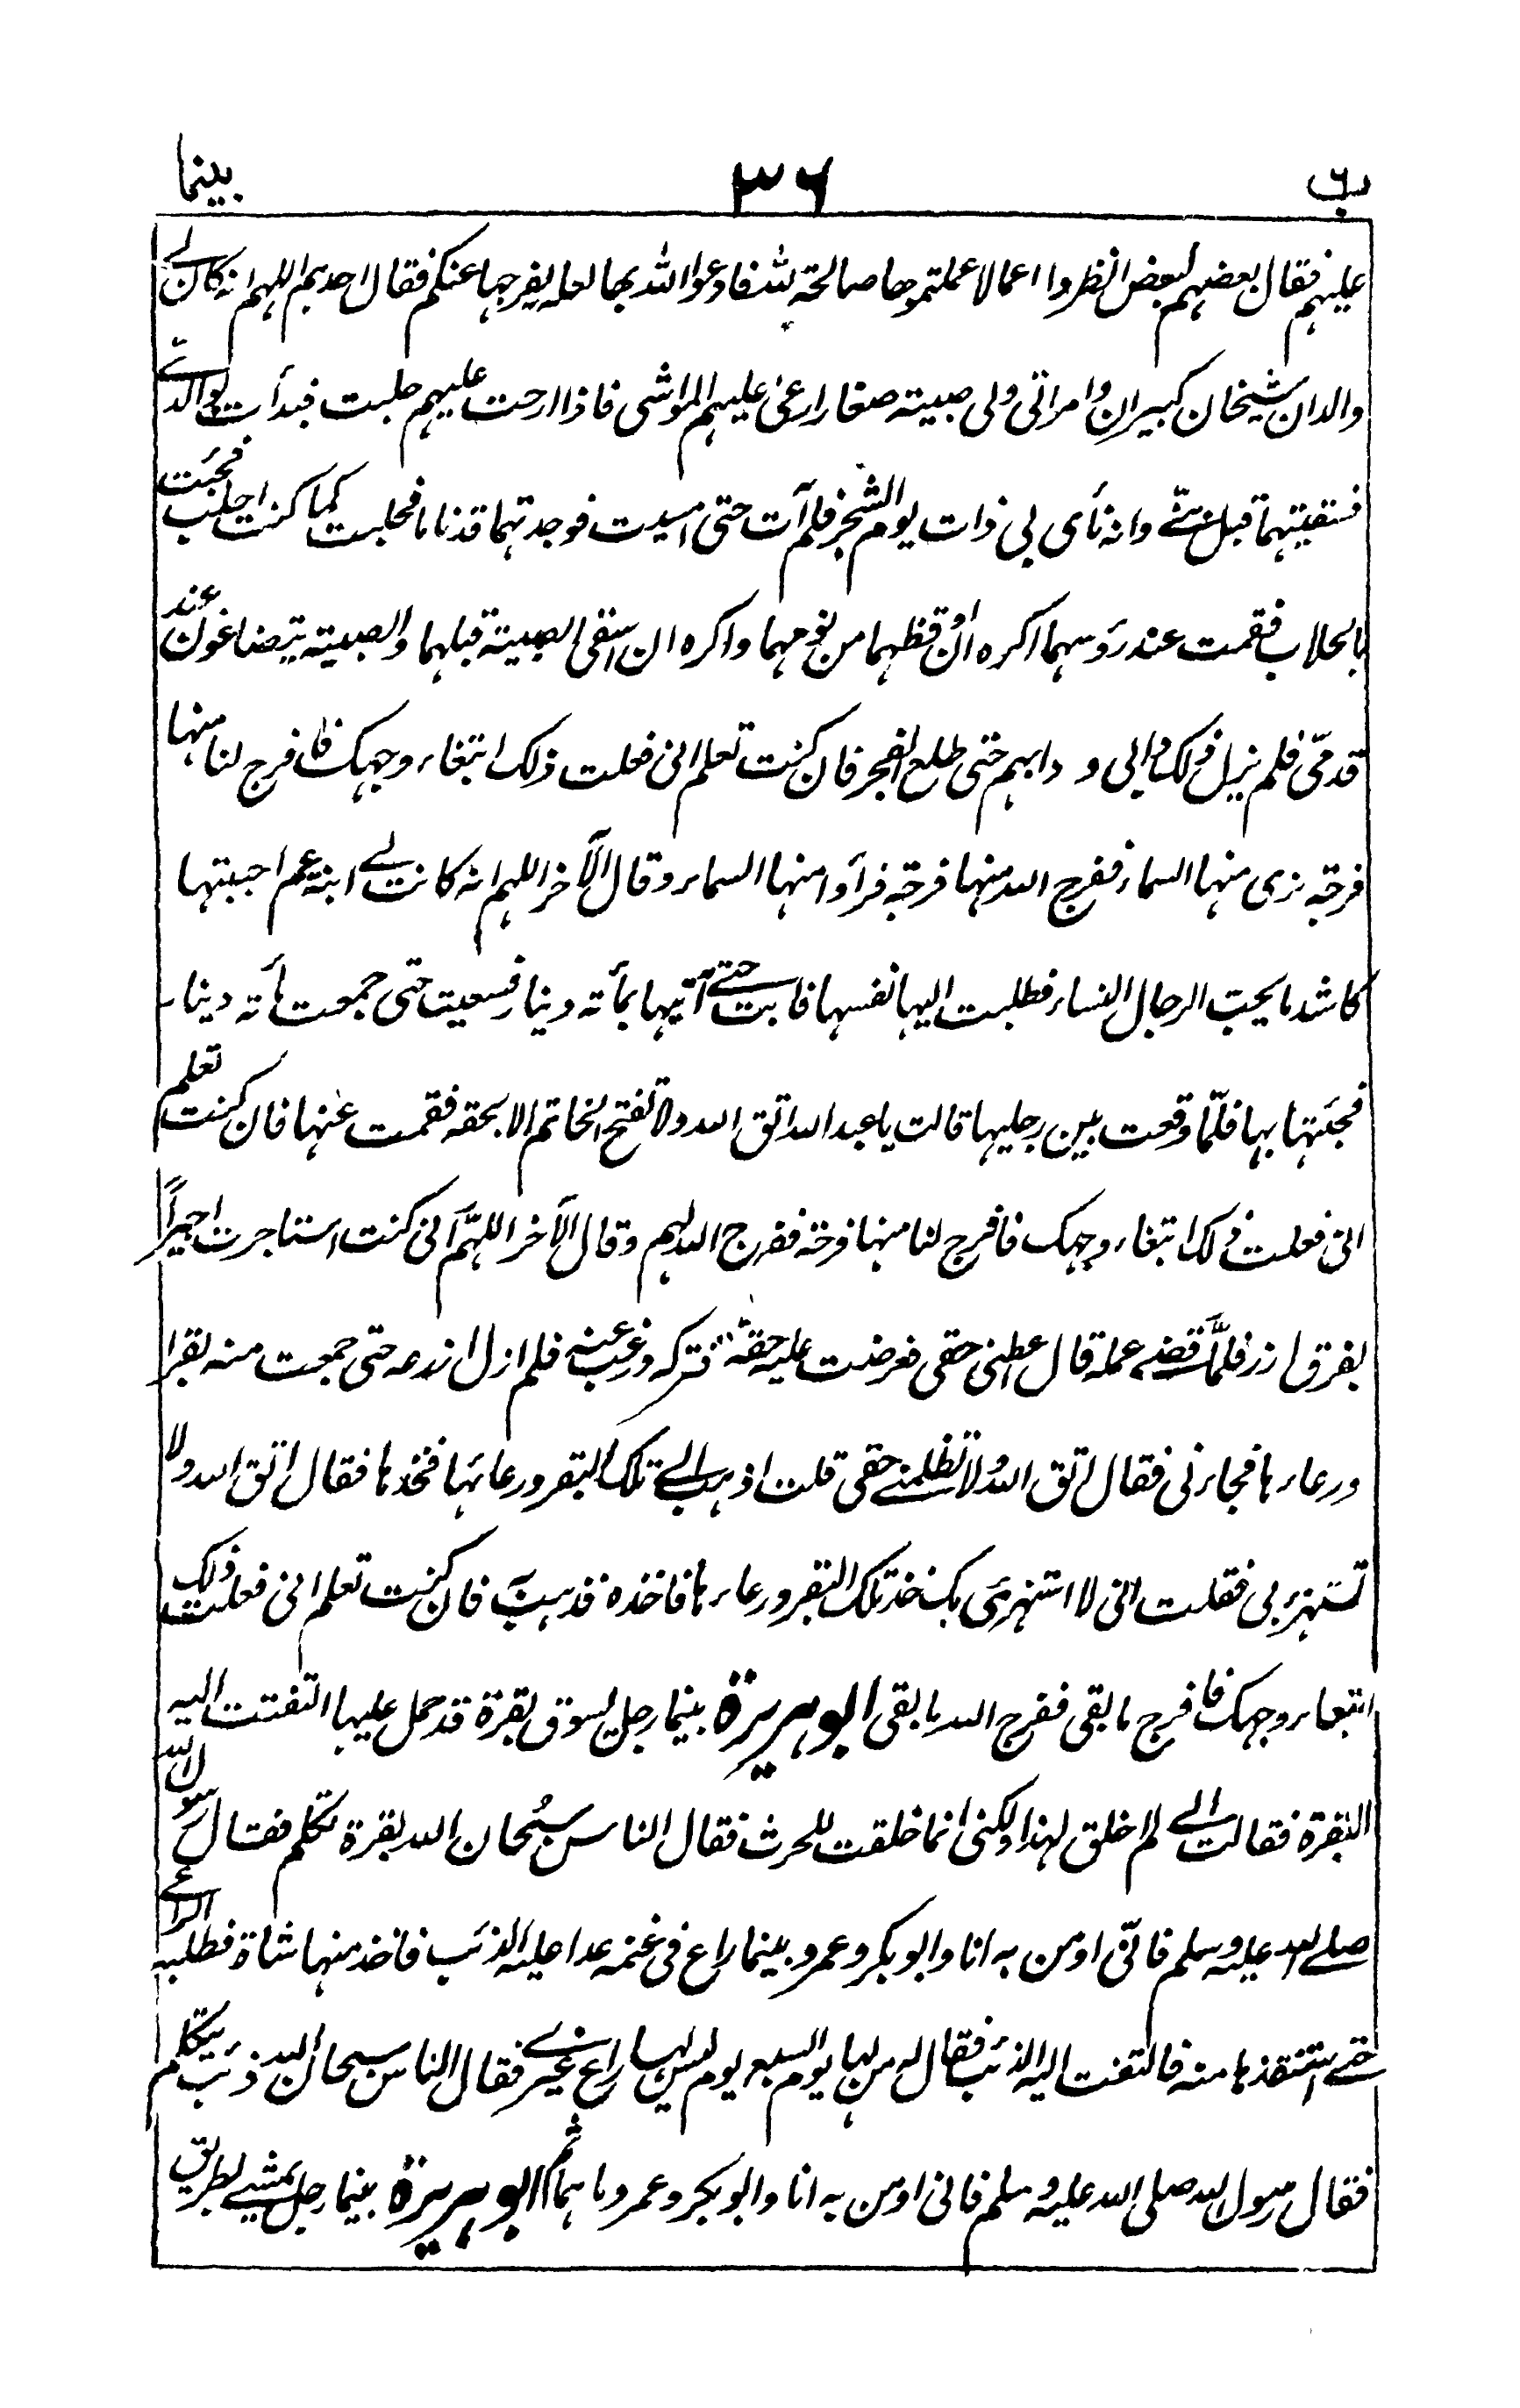 ب ٣٦ بينما
عليهم فقال بعضهم لبعض انظروا اعمالا عملتموها صالحة لله فادعوا الله بها لعله يفرجها عنكم فقال احدهم اللهم انه كان لے
والدان شيخان كبيران وامراتى ولى صبية صغار ارعى عليهم المواشى فاذا ارحت عليهم حلبت فبدأت بوالدے
فسقيتهما قبل بنىّ وانه نأى بى ذات يوم الشجر فلم آت حتى امسيت فوجدتهما قد ناما فحلبت كما كنت احلب فجئت
بالحلاب فقمت عند رؤسهما اكره ان اوقظهما من نومهما واكره ان اسقى الصبية قبلهما والصبية يتضاغون عند
قدمىّ فلم يزل ذلك دابى ودابهم حتى طلع الفجر فان كنت تعلم انى فعلت ذلك ابتغاء وجهك فافرج لنا منها
فرجة نرى منها السماء ففرج الله منها فرجة فرأوا منها السماء وقال الآخر اللهم انه كانت لے ابنة عم احببتها
كاشد ما يحب الرجال النساء فطلبت اليها نفسها فابت حتے آتيها بمأته دينار فسعيت حتى جمعت مأته دينار
فجئتها بها فلمّا وقعت بين رجليها قالت يا عبد الله اتق الله ولا تفتح الخاتم الا بحقه فقمت عنها فان كنت تعلم
انى فعلت ذلك ابتغاء وجهك فافرج لنا منها فرجة ففرج الله لهم وقال الآخر اللهمّ انى كنت استاجرت اجيراً
بفرق ارز فلمّا قضے عمله قال اعطنى حقى فعرضت عليه حقه فتركه ورغب عنه فلم ازل ازرعه حتى جمعت منه بقرا
ورعاءها فجاءنى فقال اتق الله ولا تظلمنے حقى قلت اذهب الے تلك البقر ورعائها فخذها فقال اتق الله ولا
تستهزء بى فقلت انى لا استهزئ بك خذ تلك البقر ورعاءها فاخذه فذهب به فان كنت تعلم انى فعلت ذلك
ابتغاء وجهك فافرج ما بقى ففرج الله ما بقى ابو هريرة بينما رجل يسوق بقرة قد حمل عليها التفتت اليه
البقرة فقالت انے لم اخلق لهذا ولكنى انما خلقت للحرث فقال الناس سبحان الله بقرة تكلم فقال رسول الله
صلے الله عليه وسلم فانّى اومن به انا وابو بكر وعمر وبينما راع فى غنمه عدا عليه الذئب فاخذ منها شاة فطلبه الراعے
حتے استنقذها منه فالتفت اليه الذئب فقال له من لها يوم السبع يوم ليس لها راع غيرے فقال الناس سبحان الله ذئب يتكلم
فقال رسول الله صلى الله عليه وسلم فانى اومن به انا وابو بكر وعمر وما هما ثم ابو هريرة بينما رجل يمشے بطريق